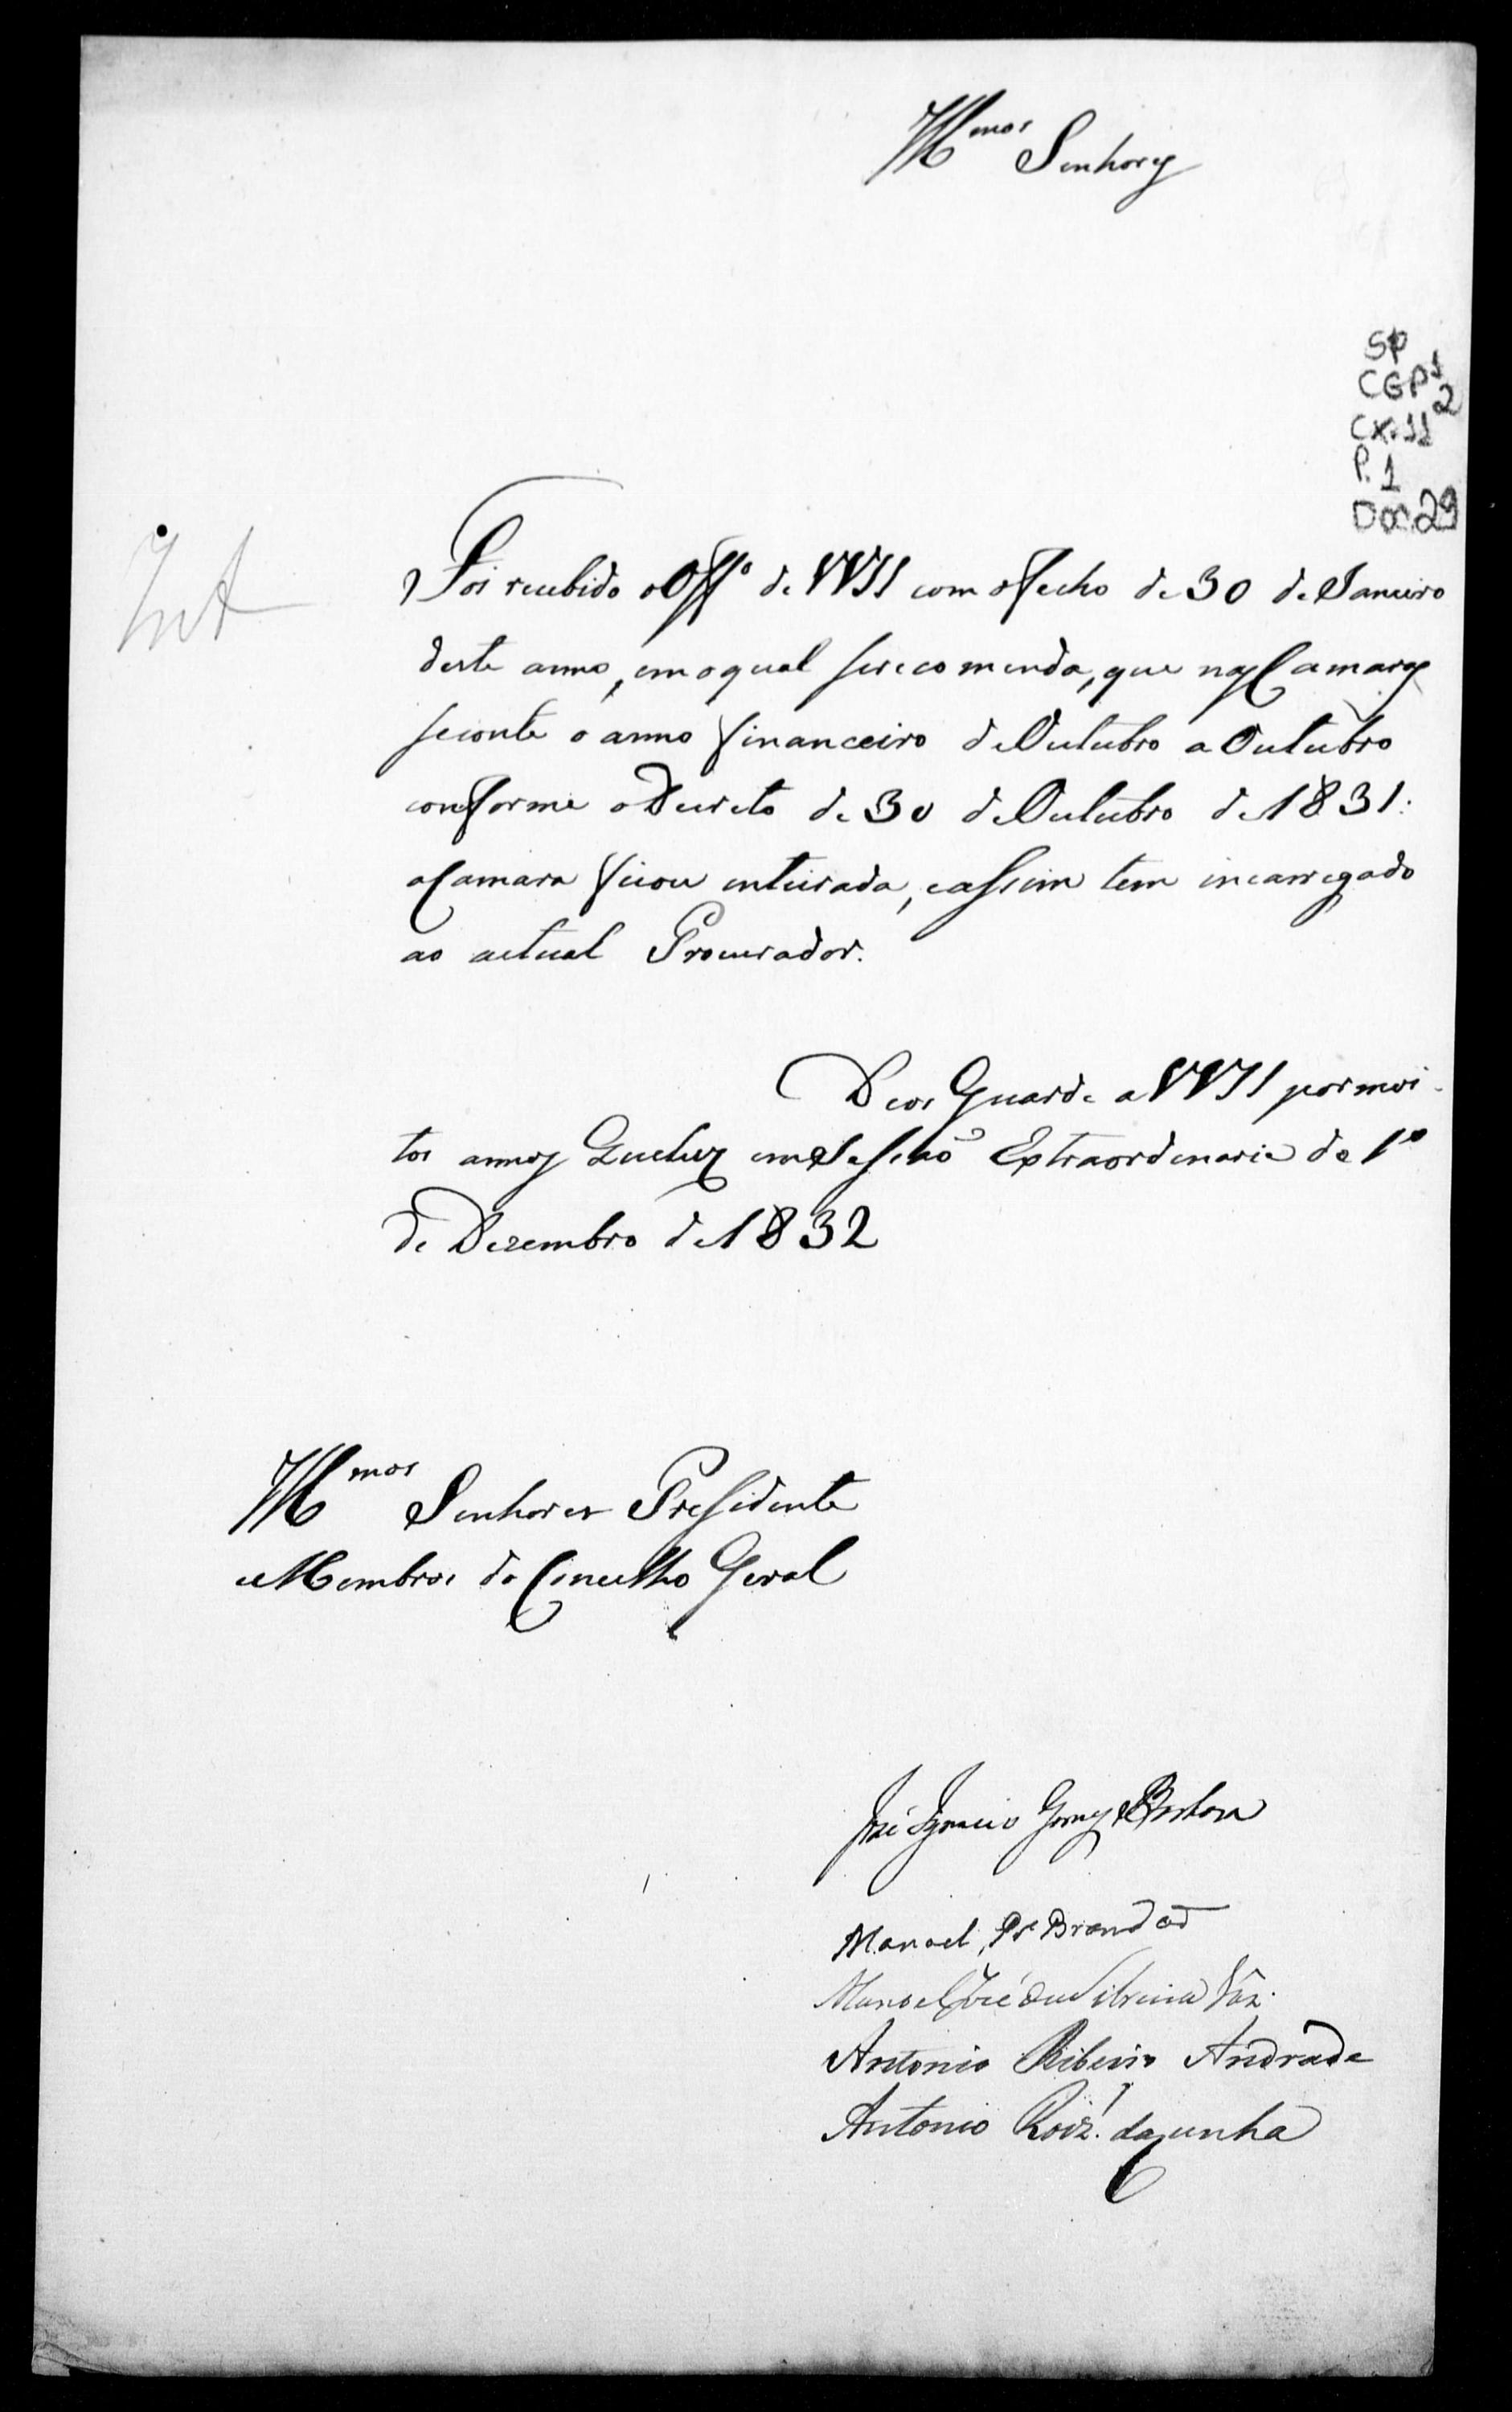 Illmos Senhores
SP
CGP 1 2
CX. 11
P. 1
DOC. 29
Int
Foi recebido o Offo de VVSS com o fecho de 30 de Janeiro
deste anno, em o qual se recomenda, que nas Camaras
se conte o anno financeiro de Outubro a Outubro
conforme o Decreto de 30 de Outubro de 1831:
a Camara ficou enteirada, e assim tem incarregado
ao actual Procurador.
Deos Guarde a VVSS por moi-
tos annos Queluz em Sessaõ Extraordenaria de 1º
de Dezembro de 1832
Illmos Senhores Presidente
e Membros do Concelho Geral
José Ignacio Gomes Barboza
Manoel Pra Brandaõ
Manoel José da Silveira Vaz
Antonio Ribeiro Andrade
Antonio Roiz. da Cunha